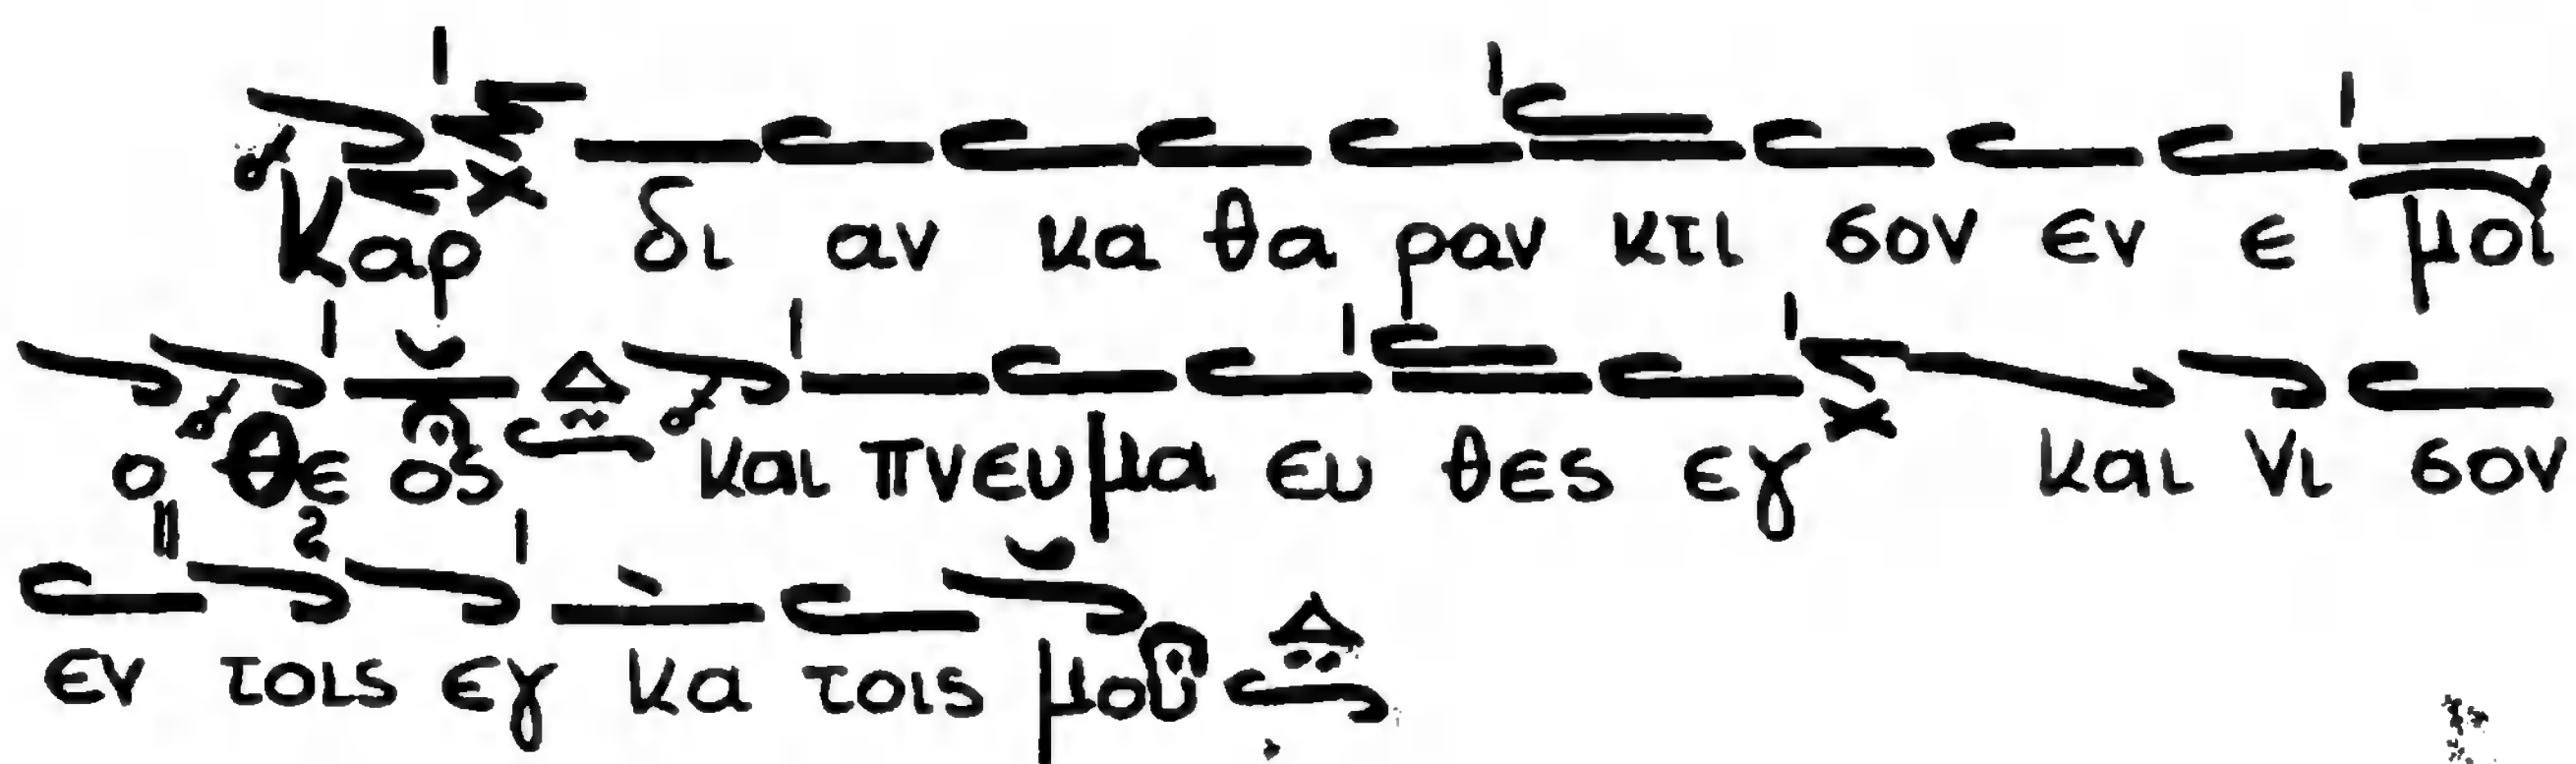 Καρ δι αν κα θα ραν κτι σον εν ε μοι
ο θε ος Δ και πνευμα ευ θες εγ και νι σον
εν τοις εγ κα τοις μου Δ